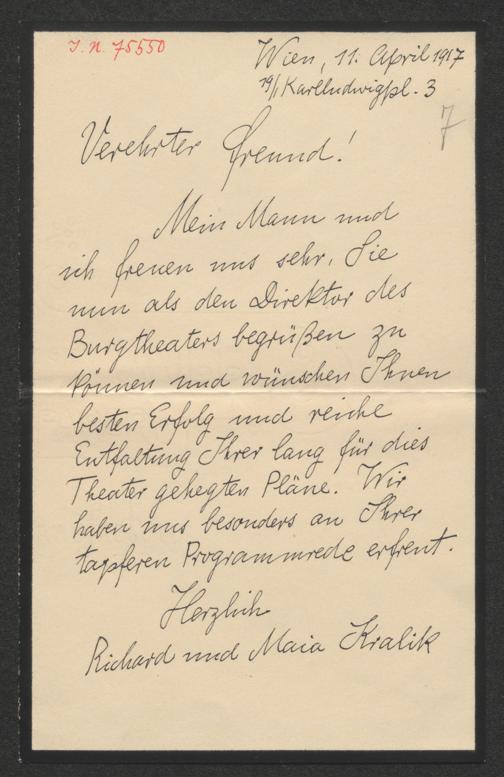 I. N. 75550
Wien, 11. April 1917
19/1 Karlludwigpl. 3
7
Verehrter Freund!
Mein Mann und
ich freuen uns sehr, Sie
nun als den Direktor des
Burgtheaters begrüßen zu
können und wünschen Ihnen
besten Erfolg und reiche
Entfaltung Ihrer lang für dies
Theater gehegten Pläne. Wir
haben uns besonders an Ihrer
tapferen Programmrede erfreut.
Herzlich
Richard und Maia Kralik